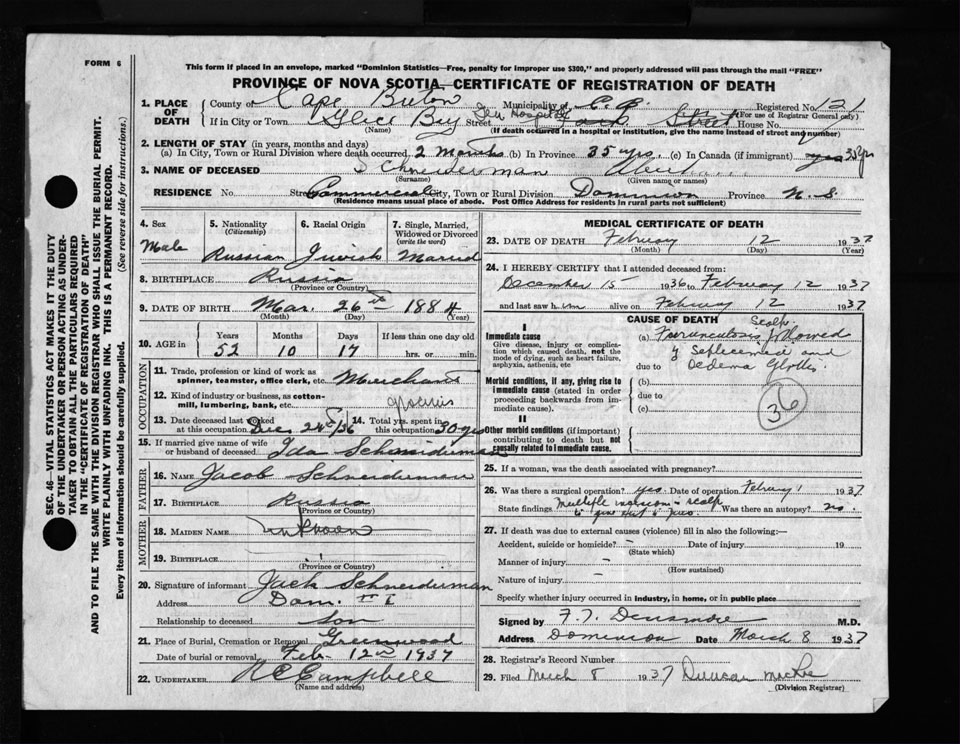 FORM 6
This form if placed in an envelope, marked "Dominion Statistics—Free, penalty for improper use $300," and properly addressed will pass through the mail "FREE"
PROVINCE OF NOVA SCOTIA—CERTIFICATE OF REGISTRATION OF DEATH
1. PLACE OF DEATH
County of Cape Breton Municipality of C. B. Registered No. 121
(For use of Registrar General only)
If in City or Town Glace Bay Street Hospital South Street House No.
(Name) (If death occurred in a hospital or institution, give the name instead of street and number)
2. LENGTH OF STAY (in years, months and days)
(a) In City, Town or Rural Division where death occurred 2 months (b) In Province 35 yrs (c) In Canada (if immigrant) yrs 35 yrs
3. NAME OF DECEASED Schneiderman
(Surname) (Given name or names)
RESIDENCE No. Street Commercial City, Town or Rural Division Dominion Province N. S.
(Residence means usual place of abode. Post Office Address for residents in rural parts not sufficient)
4. Sex Male
5. Nationality (Citizenship) Russian
6. Racial Origin Jewish
7. Single, Married, Widowed or Divorced (write the word) Married
8. BIRTHPLACE Russia
(Province or Country)
9. DATE OF BIRTH Mar. 26th 1884
(Month) (Day) (Year)
10. AGE in Years 52 Months 10 Days 17 If less than one day old hrs. or min.
OCCUPATION
11. Trade, profession or kind of work as spinner, teamster, office clerk, etc. Merchant
12. Kind of industry or business, as cotton-mill, lumbering, bank, etc. groceries
13. Date deceased last worked at this occupation Dec. 24th/36
14. Total yrs. spent in this occupation 30 yrs
15. If married give name of wife or husband of deceased Ida Schneiderman
FATHER
16. NAME Jacob Schneiderman
17. BIRTHPLACE Russia
(Province or Country)
MOTHER
18. MAIDEN NAME unknown
19. BIRTHPLACE
(Province or Country)
20. Signature of informant Jack Schneiderman
Address Dom.
Relationship to deceased son
21. Place of Burial, Cremation or Removal Greenwood
Date of burial or removal Feb. 12th 1937
22. UNDERTAKER A C Campbell
(Name and address)
MEDICAL CERTIFICATE OF DEATH
23. DATE OF DEATH February 12 1937
(Month) (Day) (Year)
24. I HEREBY CERTIFY that I attended deceased from:
December 15 1936 to February 12 1937
and last saw him alive on February 12 1937
CAUSE OF DEATH
I
Immediate cause
Give disease, injury or complication which caused death, not the mode of dying, such as heart failure, asphyxia, asthenia, etc
Morbid conditions, if any, giving rise to immediate cause (stated in order proceeding backwards from immediate cause).
II
Other morbid conditions (if important) contributing to death but not causally related to immediate cause.
Scalp
(a) Furunculosis followed
by Septicemia and
due to Oedema Glottis
(b)
due to
(c)
36
25. If a woman, was the death associated with pregnancy?
26. Was there a surgical operation? yes Date of operation February 1 1937
State findings multiple incisions scalp to give exit to pus Was there an autopsy? no.
27. If death was due to external causes (violence) fill in also the following:—
Accident, suicide or homicide? – Date of injury 19
(State which)
Manner of injury –
(How sustained)
Nature of injury –
Specify whether injury occurred in industry, in home, or in public place
Signed by M.D.
Address Dominion Date March 8 1937
28. Registrar's Record Number
29. Filed March 8 1937 Duncan MacRae
(Division Registrar)
SEC. 46—VITAL STATISTICS ACT MAKES IT THE DUTY
OF THE UNDERTAKER OR PERSON ACTING AS UNDER-
TAKER TO OBTAIN ALL THE PARTICULARS REQUIRED
IN THE "CERTIFICATE OF REGISTRATION OF DEATH"
AND TO FILE THE SAME WITH THE DIVISION REGISTRAR WHO SHALL ISSUE THE BURIAL PERMIT.
WRITE PLAINLY WITH UNFADING INK. THIS IS A PERMANENT RECORD.
Every item of information should be carefully supplied. (See reverse side for instructions.)